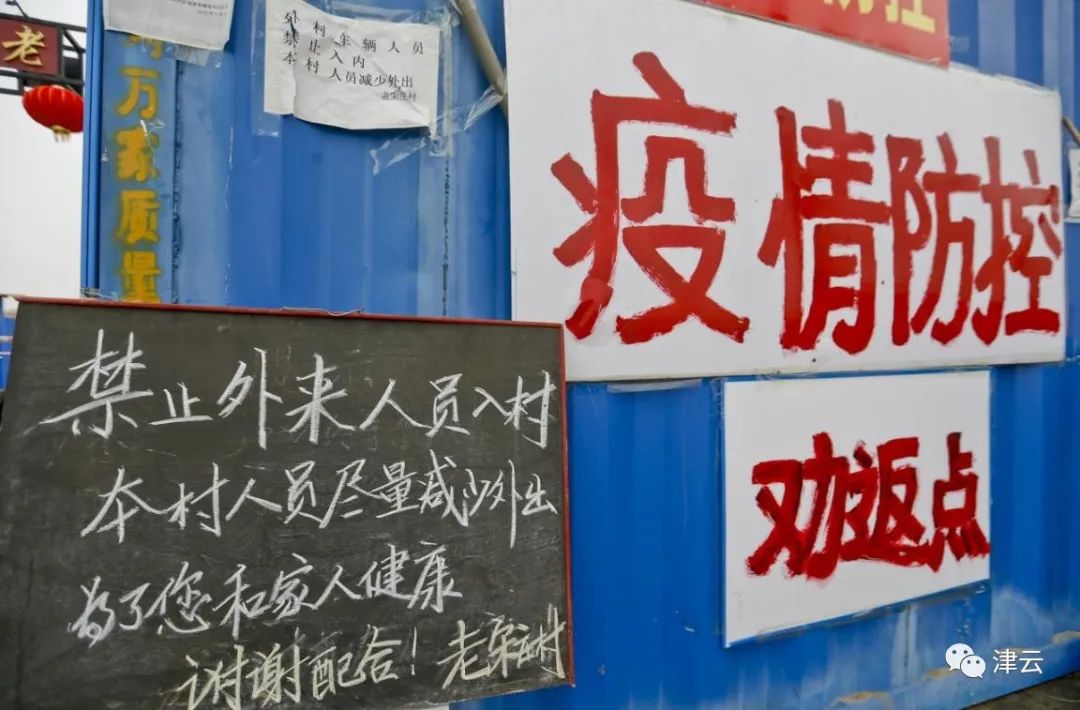 老
万
家
质
量
外村车辆人员
禁止入内
本村人员减少外出
防控
疫情防控
劝返点
禁止外来人员入村
本村人员尽量减少外出
为了您和家人健康
谢谢配合！老宋庄村
津云